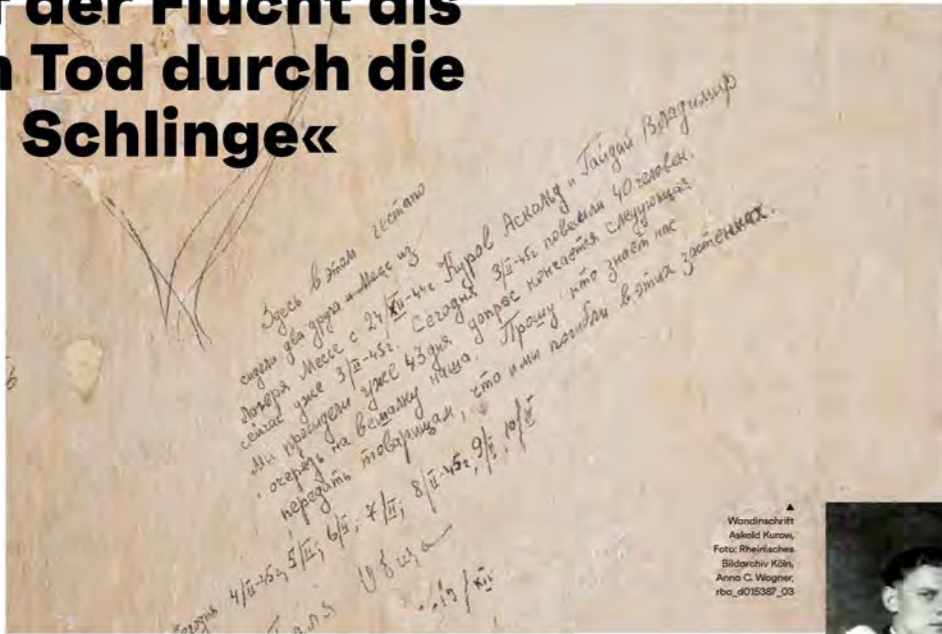 der Flucht als
Tod durch die
Schlinge«
Здесь в этом гестапо
сидели два друга из
лагеря Мессе с 24/XII-44г Куров Асколд и Гайдай Владимир
сейчас уже 3/II-45г. Сегодня 3/II-45г. повесили 40 человек.
Мы просидели уже 43 дня допрос кончается следующая
очередь на вешалку наша. Прошу кто знает нас
передать товарищам, что и мы погибли в этих застенках.
4/II-45г, 5/II; 6/II; 7/II; 8/II-45г, 9/II, 10/II
▲
Wandinschrift
Askold Kurow,
Foto: Rheinisches
Bildarchiv Köln,
Anna C. Wagner,
rba_d015387_03